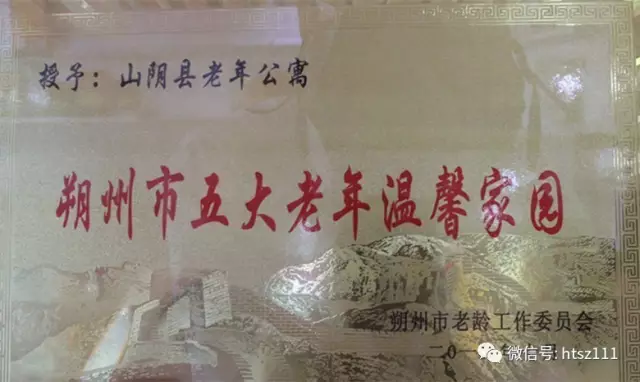 授予：山阴县老年公寓
朔州市五大老年温馨家园
朔州市老龄工作委员会
二〇一
微信号: htsz111